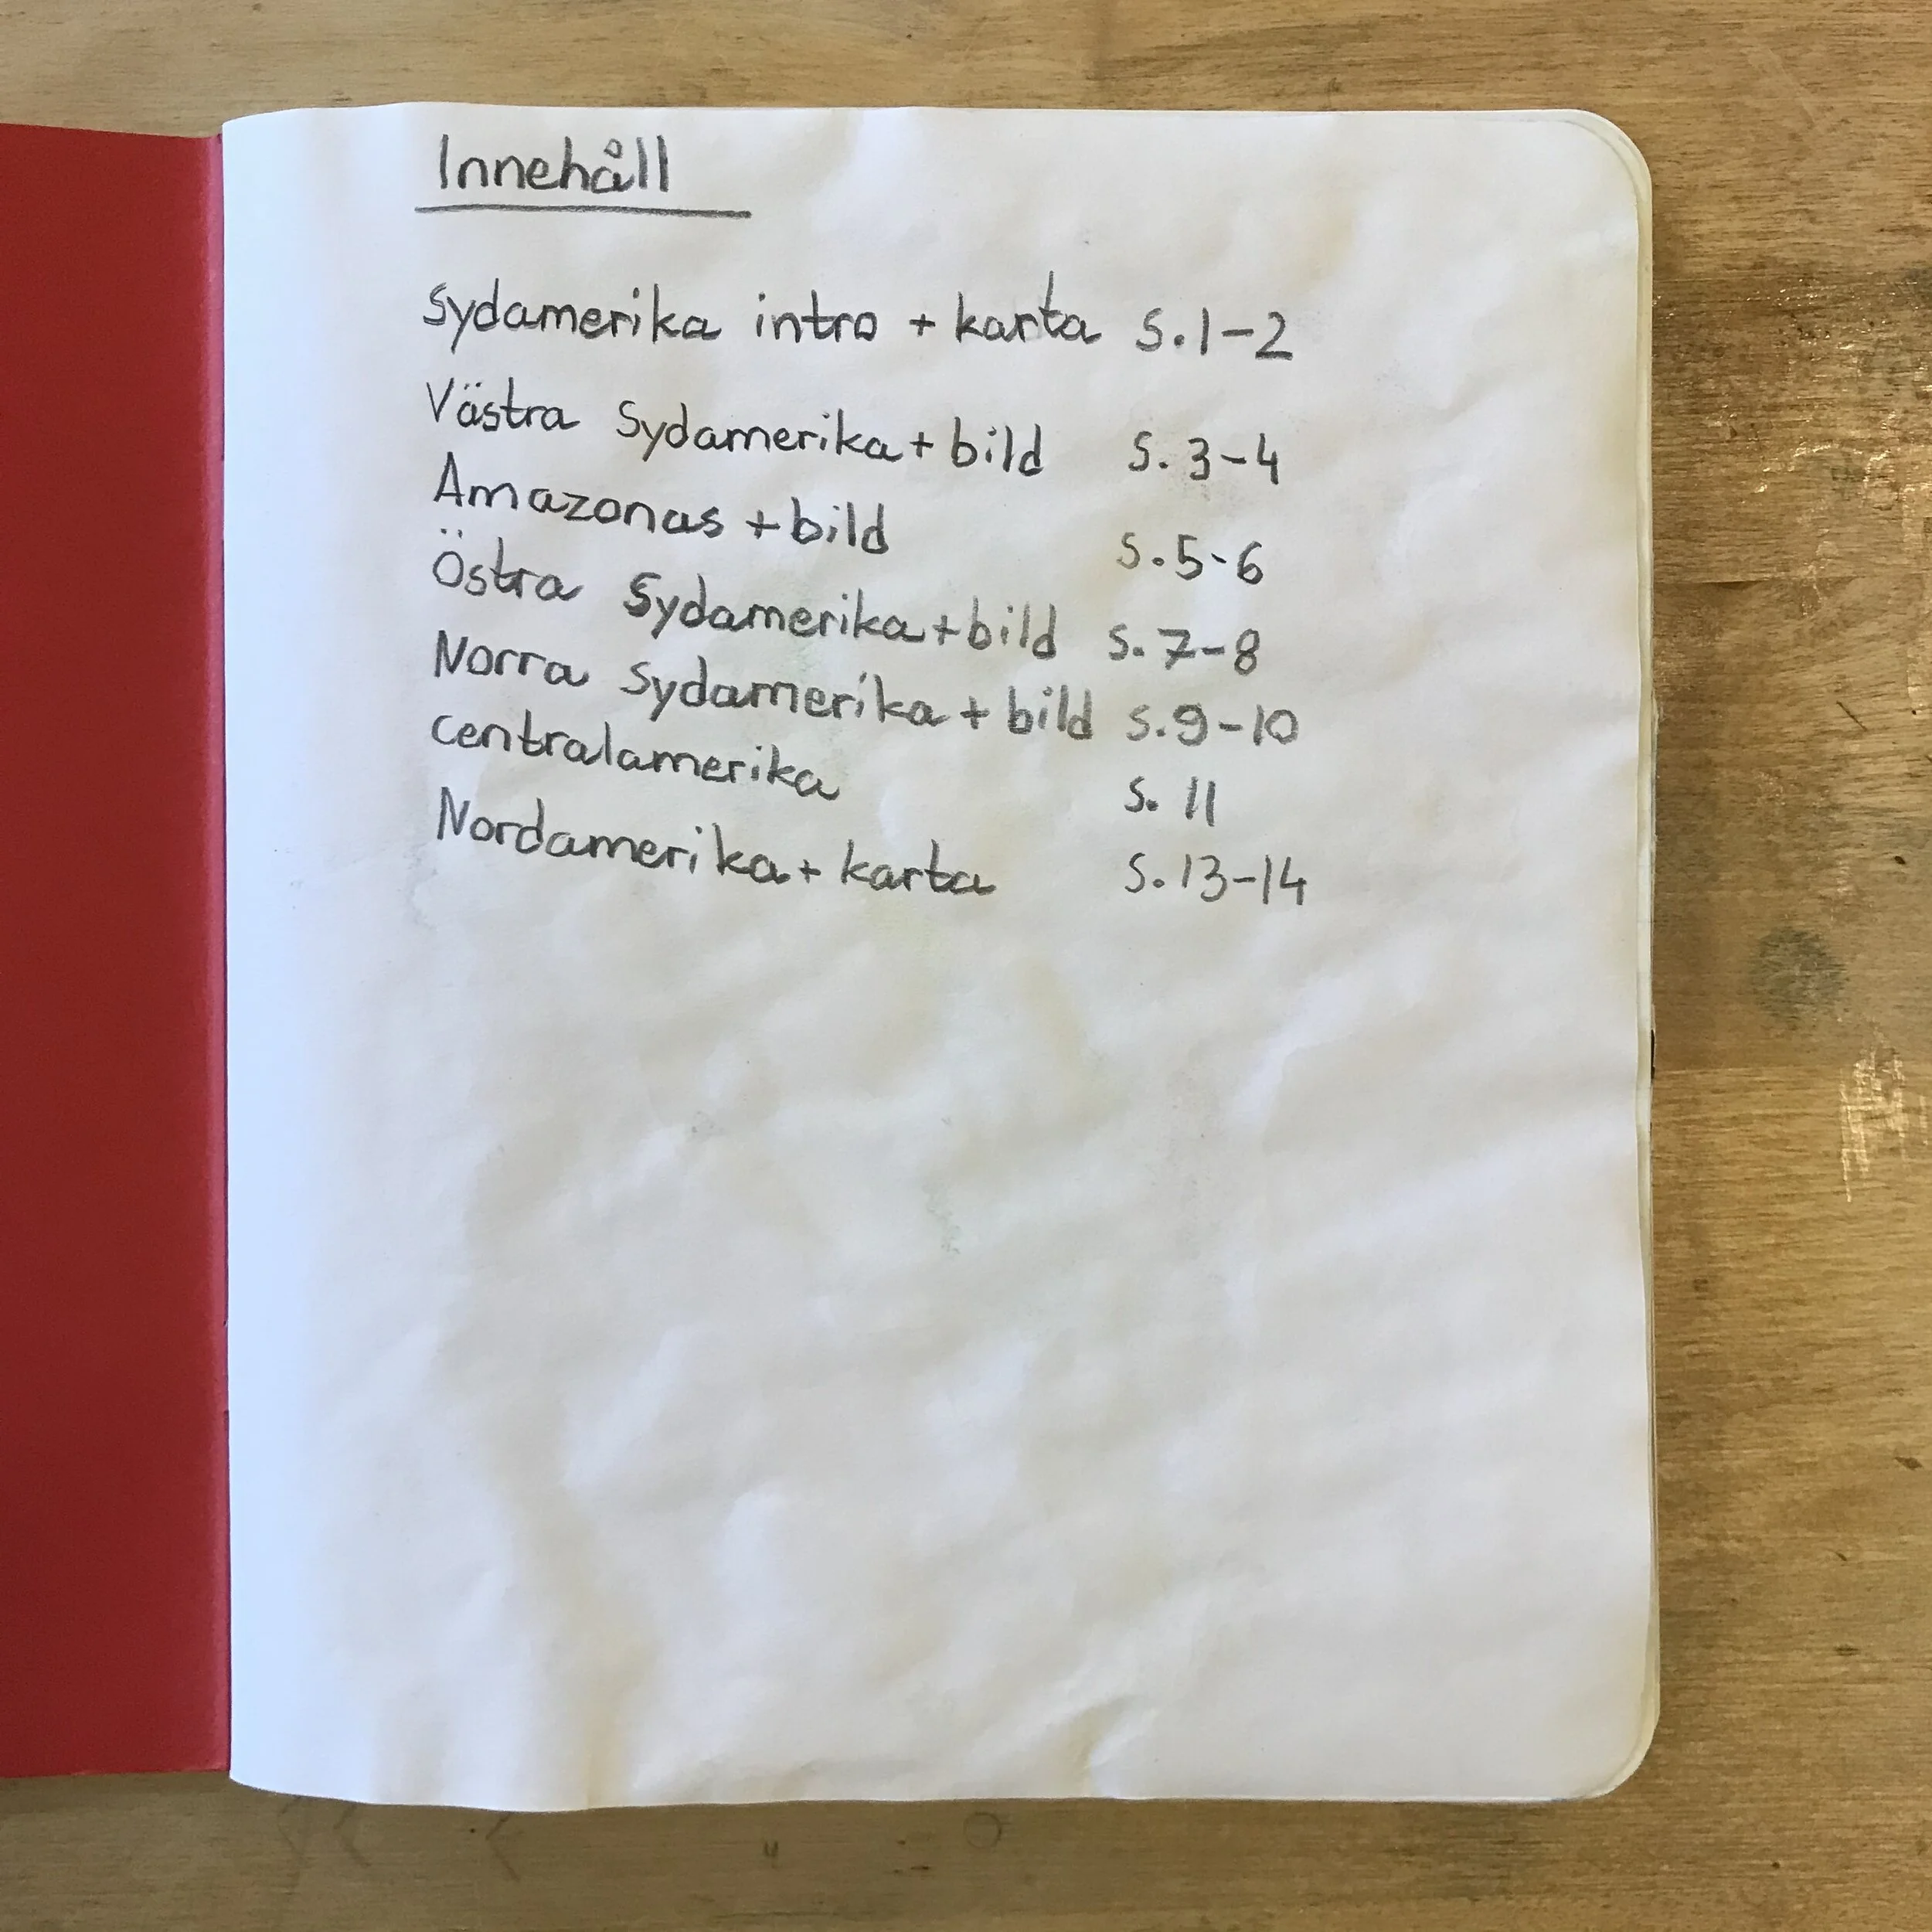 Innehåll
Sydamerika intro + karta s.1-2
Västra Sydamerika + bild s. 3-4
Amazonas + bild s.5-6
Östra Sydamerika + bild s. 7-8
Norra Sydamerika + bild s.9-10
centralamerika s. 11
Nordamerika + karta s.13-14